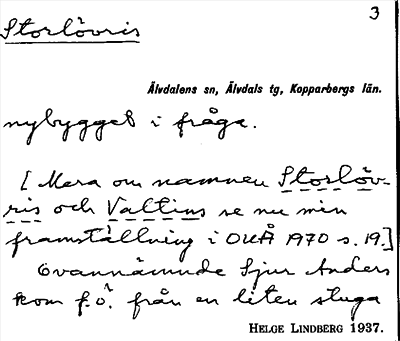 Storlövris
3
Älvdalens sn, Älvdals tg, Kopparbergs län.
nybygget i fråga.
[Mera om namnen Storlöv-
ris och Valtins se nu min
framställning i OUÅ 1970 s. 19.]
Ovannämnde Sjur Anders
kom f.ö. från en liten stuga
HELGE LINDBERG 1937.